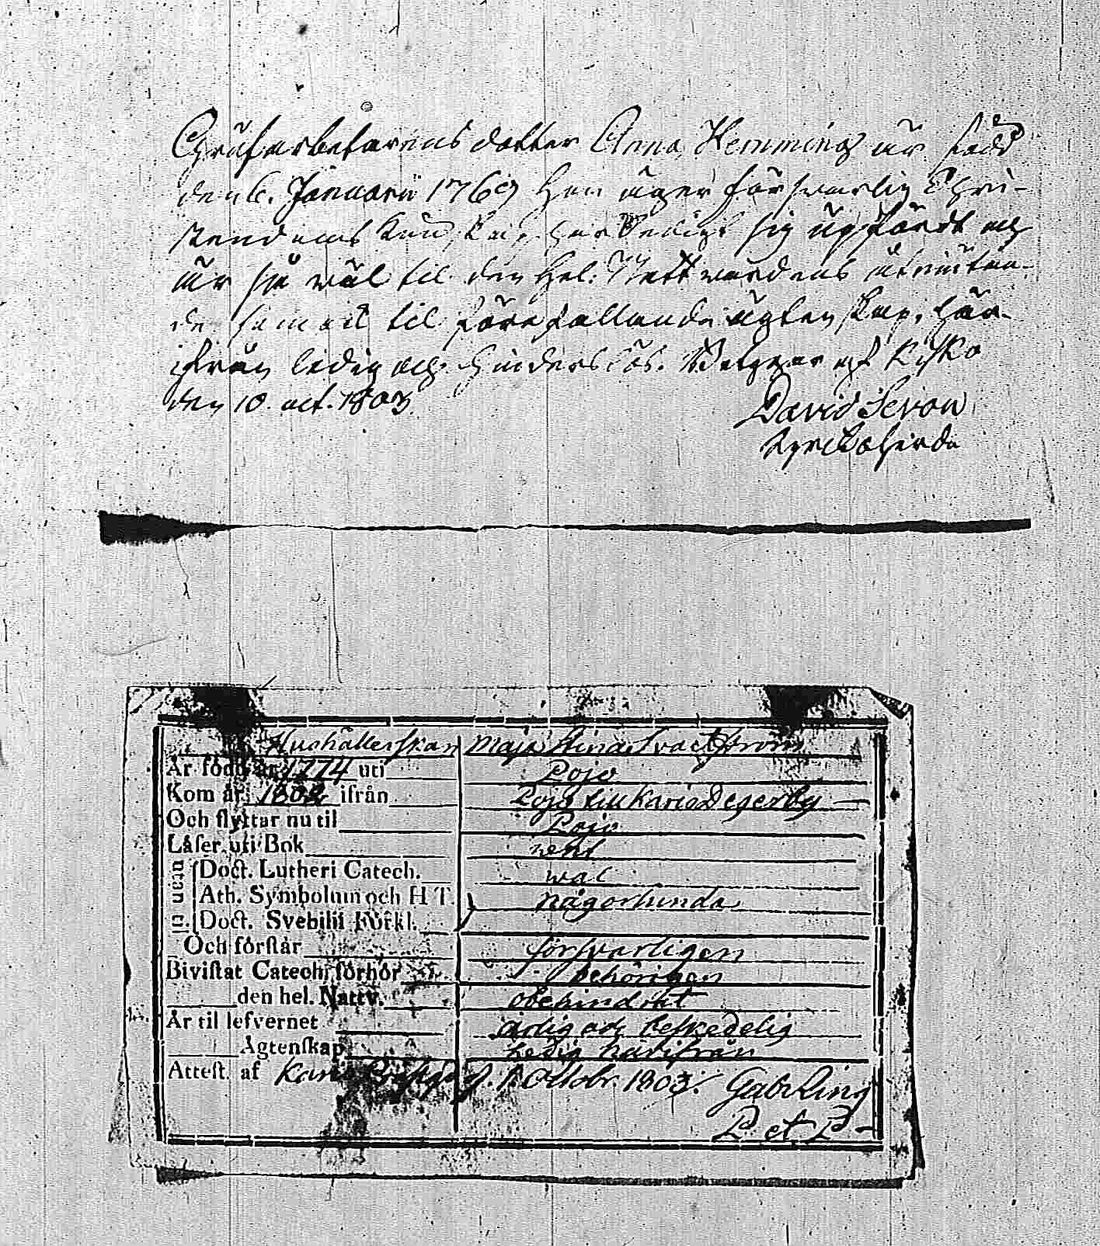 Grufarbetarens dotter Anna Hemming är född
den 6. Januarii 1769 Hon äger försvarlig Chri-
stendoms Kunskap, har sedigt sig upfördt och
är så väl til den Hel. Nattvardens åtniutan-
de som ock til förefallande ägtenskap, här-
ifrån ledig och hinderslös. Betygar af Kisko
den 10. oct. 1803.
David Sevon
Kyrckoherde
Hushållerskan Maja Stina
År född år 1774 uti Pojo
Kom år 1802 ifrån Pojo till Karis Degerby
Och flyttar nu til Pojo
Låser uti Bok rent
utan Doct. Lutheri Catech. wal
Ath. Symbolum och H T. någorlunda
Doct. Svebilii Förkl.
Och förstår försvarligen
Bivistat Catech. förhör behörigen
den hel. Nattv. obehindrat
År til lefvernet ärlig och beskedelig
Ägtenskap Ledig härifrån
Attest. af Karis d. 1 Octobr. 1803. Gab. Ring
P et P